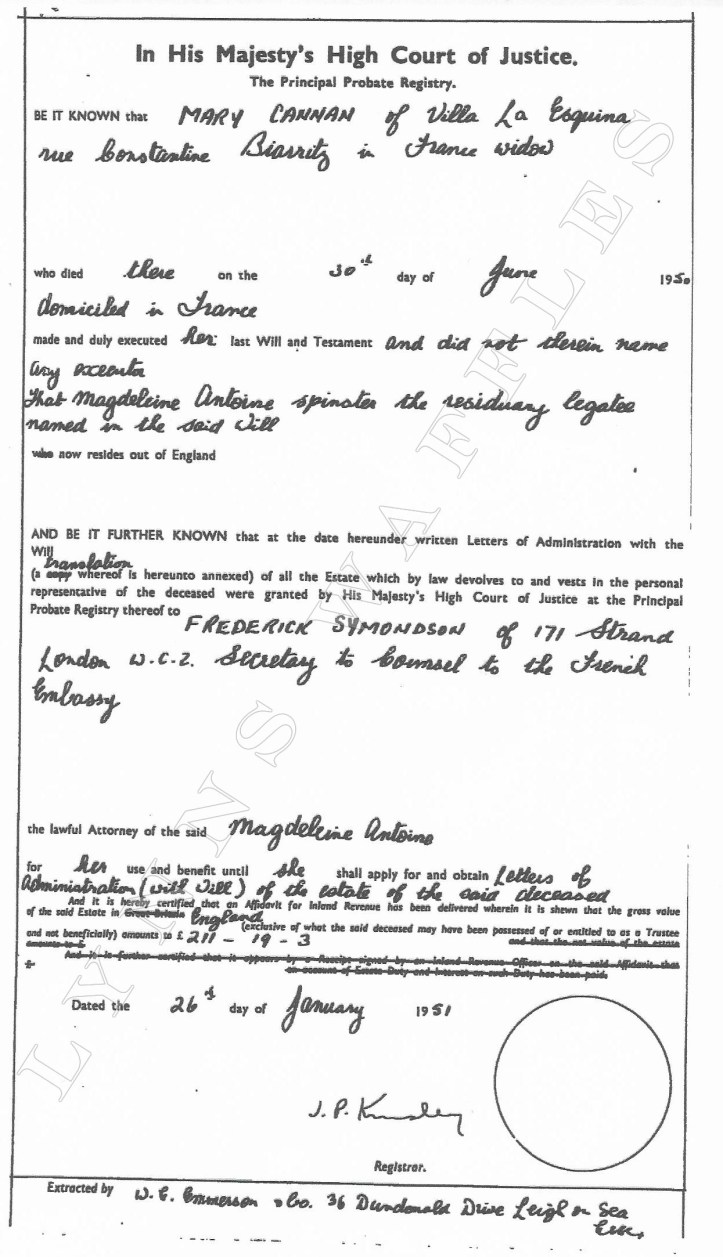 In His Majesty's High Court of Justice.
The Principal Probate Registry.
BE IT KNOWN that MARY CANNAN of Villa La Esquina
rue Constantine Biarritz in France widow
who died there on the 30th day of June 1950
domiciled in France
made and duly executed her last Will and Testament and did not therein name
any executor
that Magdeleine Antoine spinster the residuary legatee
named in the said Will
who now resides out of England
AND BE IT FURTHER KNOWN that at the date hereunder written Letters of Administration with the
Will
translation
(a copy whereof is hereunto annexed) of all the Estate which by law devolves to and vests in the personal
representative of the deceased were granted by His Majesty's High Court of Justice at the Principal
Probate Registry thereof to
FREDERICK SYMONDSON of 171 Strand
London W.C.2. Secretary to Counsel to the French
Embassy
the lawful Attorney of the said Magdeleine Antoine
for her use and benefit until she shall apply for and obtain Letters of
Administration (with Will) of the estate of the said deceased
And it is hereby certified that an Affidavit for Inland Revenue has been delivered wherein it is shewn that the gross value
of the said Estate in Great Britain England (exclusive of what the said deceased may have been possessed of or entitled to as a Trustee
and not beneficially) amounts to £ 211 - 19 - 3 and that the net value of the estate
amounts to £
And it is further certified that it appears by a Receipt signed by an Inland Revenue Officer on the said Affidavit that
£ an account of Estate Duty and interest on such Duty has been paid.
Dated the 26th day of January 1951
J. P.
Registrar.
Extracted by W. E. Emmerson & Co. 36 Dundonald Drive Leigh on Sea
Essex
LYNNS WAFFLES